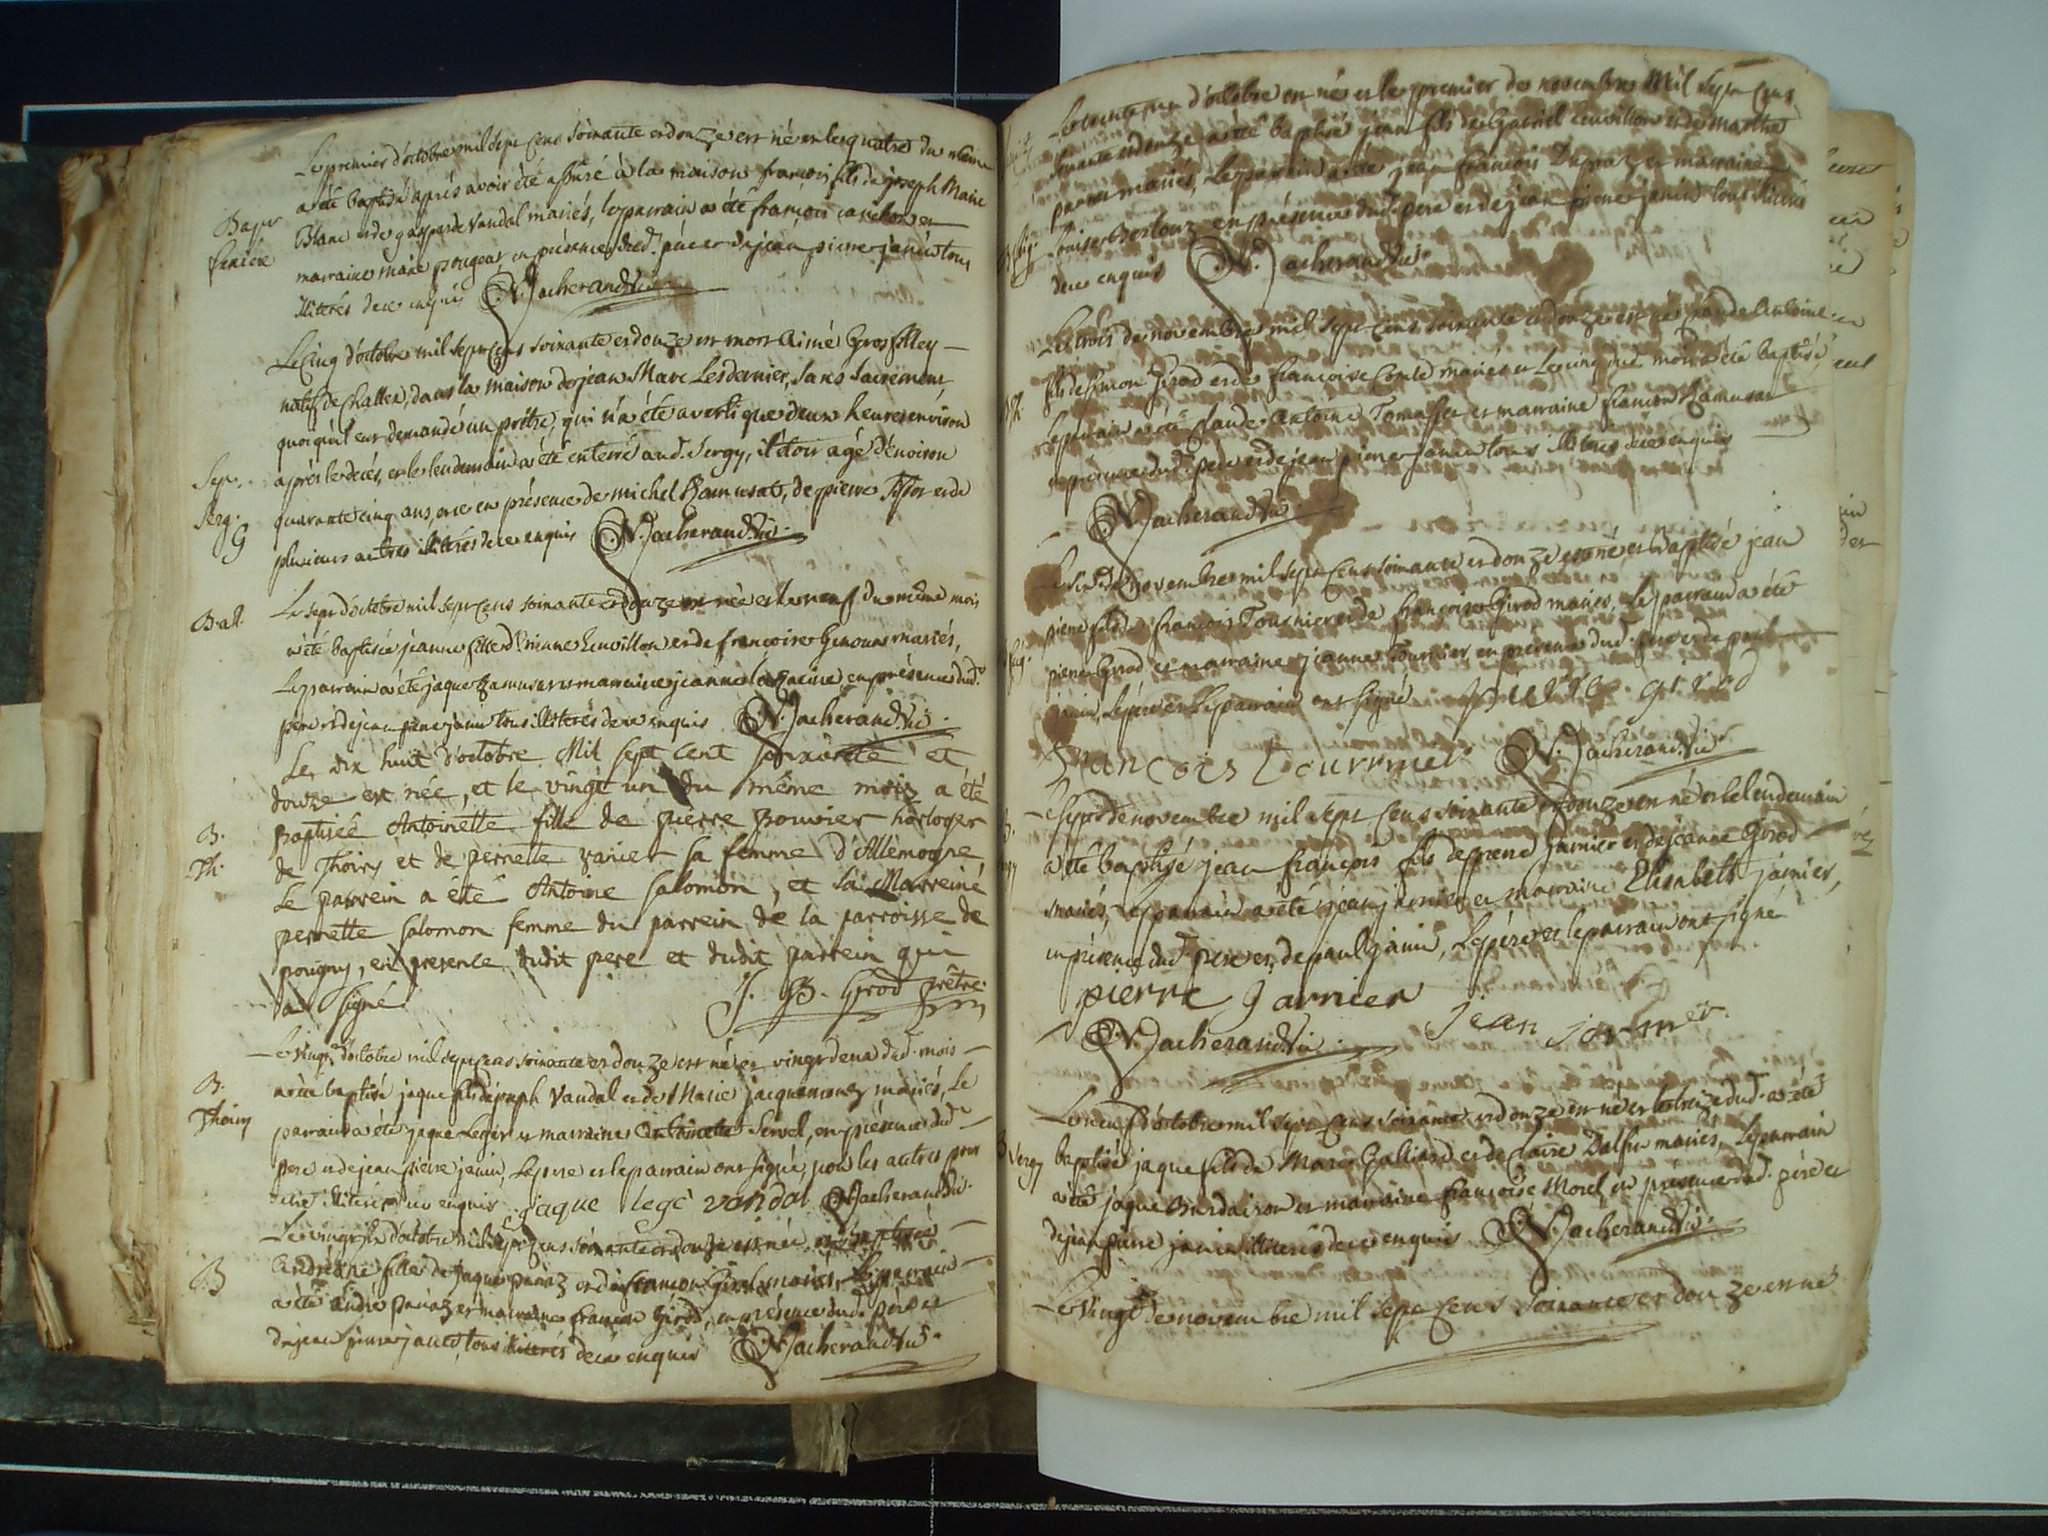 Le premier d'octobre mil sept cens soixante et douze est né et le quatre du même
a été baptisé après avoir été assuré à la maison françois fils de joseph Marie
Bapt.
Blanc et de gasparde Vandal mariés, le parrain a été françois
marraine marie pougeat en présence dud. père et de jean pierre janin tous
illiterés de ce enquis N. Jacherand Vic.
Le Cinq d'octobre mil sept cens soixante et douze est mort Aimé Grosfilley
natif de Challex, dans la maison de jean Marc Lesdernier, sans sacrement
quoiqu'il eut demandé un prêtre, qui n'a été averti que deux heures environ
Sep.
après le decés, et le lendemain a été enterré aud. Sergy, il étoit agé d'environ
Serg.
quarante cinq ans, ce en présence de michel Ramusat, de pierre Tissot et de
G
plusieurs autres illiterés de ce enquis N. Jacherand Vic.
Le sept d'octobre mil sept cens soixante et douze est née et le neuf du même mois
Bat.
a été baptisée jeanne fille d' Levrillon et de françoise Genoux mariés,
Le parrain a été jaque Ramusat et marraine jeanne en présence dud.
pere et de jean pierre janin tous illiterés de ce enquis N. Jacherand Vic.
Le dix huit d'octobre Mil sept cent soixante et
douze est née, et le vingt un du même mois a été
Baptisée Antoinette fille de pierre Bouvier horloger
B.
Th.
de Thoiry et de pernette Zanier sa femme d'Allemogne,
Le parrein a été Antoine Salomon, et la Marreine
pernette Salomon femme du parrein de la parroisse de
pougny, en presence dudit pere et dudit parrein qui
a signé J. B. Girod prêtre
Le Vingt d'octobre mil sept cens soixante et douze est né et vingt deux dud. mois
B.
a été baptisé jaque fils de joseph Vandal et de Marie jacquemenez mariés, Le
Thoiry
parrain a été jaque Leger et marraine Antoinette Servel, en présence dud.
pere et de jean pierre janin, Le pere et le parrain ont signé, pour les autres pour
être illiterés de ce enquis jaque legé vandal N. Jacherand Vic.
Le vingt six d'octobre mil sept cens soixante et douze est née et baptisée
B
Andréane fille de jaque et de françoise Girod mariés, Le parrain
a été André et marraine françoise Girod, en présence dud. père et
de jean pierre janin, tous illiterés de ce enquis N. Jacherand Vic.
Le trente un d'octobre est né et le premier de novembre Mil sept cens
soixante et douze a été baptisé jean fils de Gabriel Levrillon et de Marthe
mariés, Le parrain a été jean françois Dupraz et marraine
Louise Bertouz en présence dud. pere et de jean pierre janin tous illiterés
de ce enquis N. Jacherand Vic.
Le trois de novembre mil sept cens soixante et douze est né Claude Antoine
fils de Simon Girod et de françoise Comte mariés et Le cinq dud. mois a été baptisé,
Le parrain a été Claude Antoine Tomasset et marraine françoise Ramusat
en présence dud. pere et de jean pierre janin tous illiterés de ce enquis
N. Jacherand Vic.
Le six de Novembre mil sept cens soixante et douze est né et baptisé jean
pierre fils de françois Tournier et de françoise Girod mariés, Le parrain a été
pierre Girod et marraine jeanne Tournier en présence dud. pere et de paul
janin, Le père et le parrain ont signé
françois Tournier N. Jacherand Vic.
Le sept de novembre mil sept cens soixante et douze est né et le lendemain
a été baptisé jean françois fils de pierre jarnier et de jeanne Girod
mariés, Le parrain a été jean jarnier et marraine Elisabeth jarnier,
en présence dud. pere et de paul janin, Le père et le parrain ont signé
pierre jarnier jean jarnier
N. Jacherand Vic.
Le neuf d'octobre mil sept cens soixante et douze est né et le treize dud. a été
Sergy
baptisé jaque fils de Marc Galliard et de Claire Dalfin mariés, Le parrain
a été jaque Burdairon et marraine françoise Morel en présence dud. père et
de jean pierre janin illiterés de ce enquis N. Jacherand Vic.
Le Vingt de novembre mil sept cens soixante et douze est né